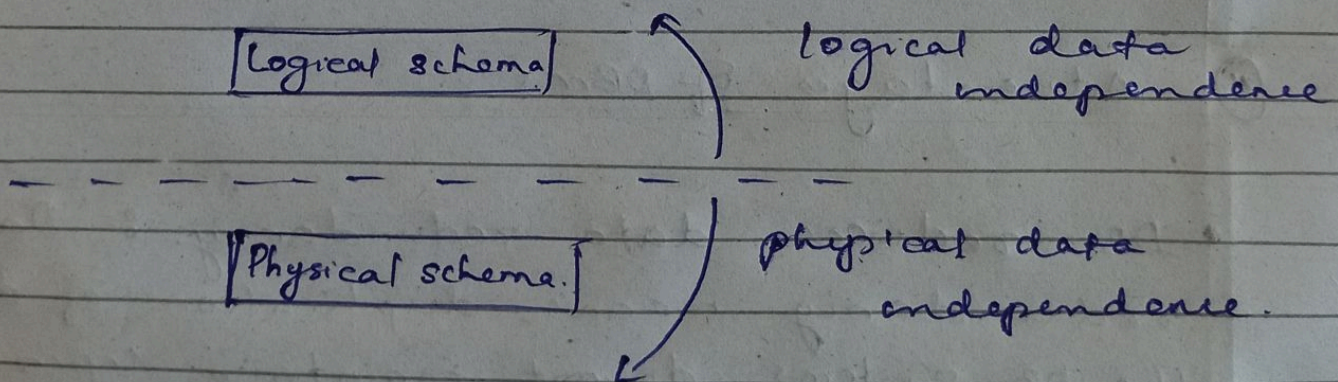 Logical schema
logical data
independence
Physical schema.
physical data
independence.